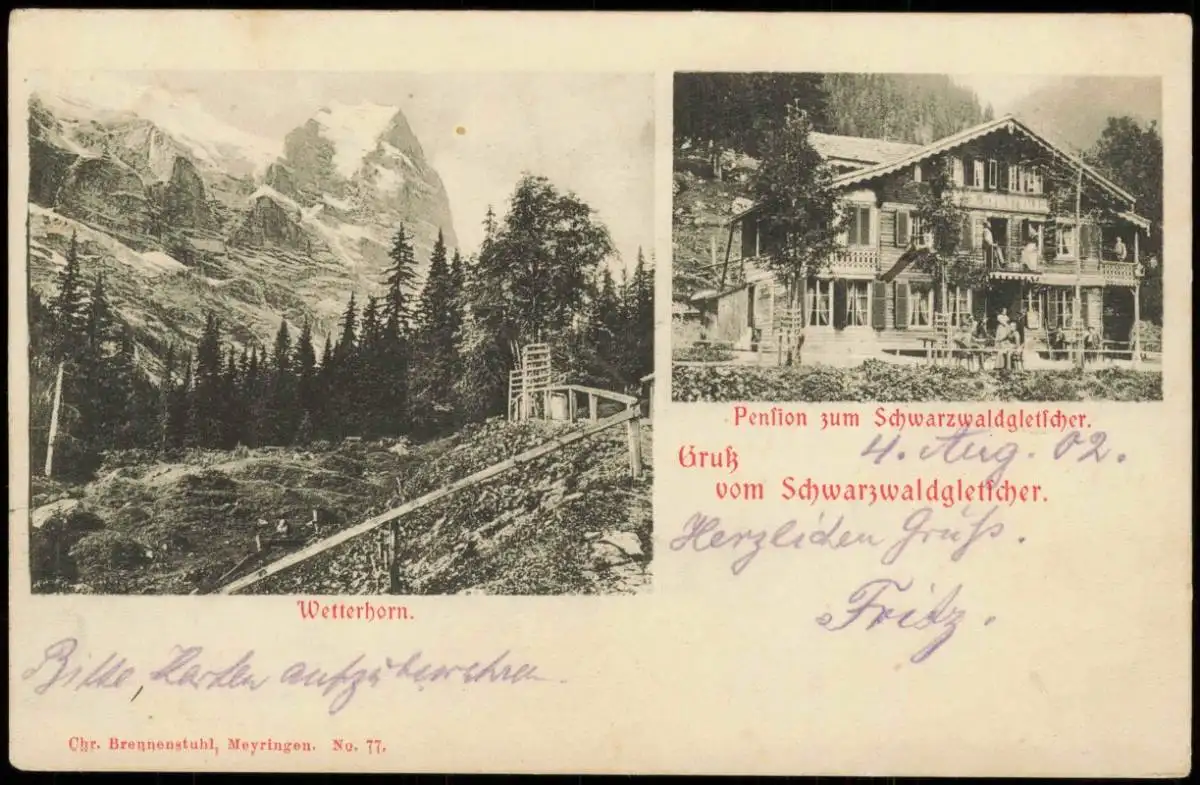 Pension zum Schwarzwaldgletscher.
4. Aug. 02.
Gruß
vom Schwarzwaldgletscher.
Herzlichen Gruß.
Fritz.
Wetterhorn.
Bitte, Karten aufzubewahren.
Chr. Brennenstuhl, Meyringen. No. 77.